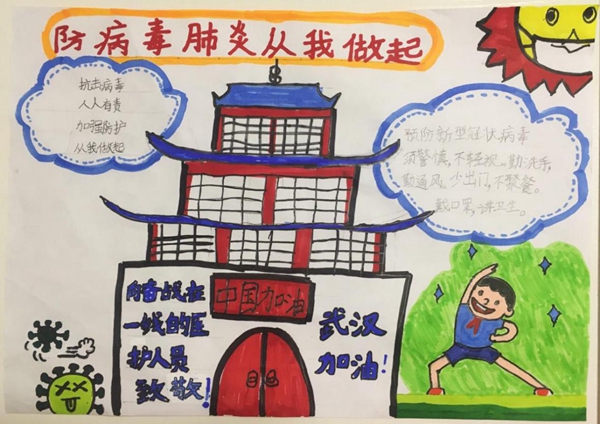 防病毒肺炎从我做起
抗击病毒
人人有责
加强防护
从我做起
预防新型冠状病毒
须警惕,不轻视。勤洗手,
勤通风。少出门,不聚餐。
戴口罩,讲卫生。
中国加油
向奋战在
一线的医
护人员
致敬!
武汉
加油!